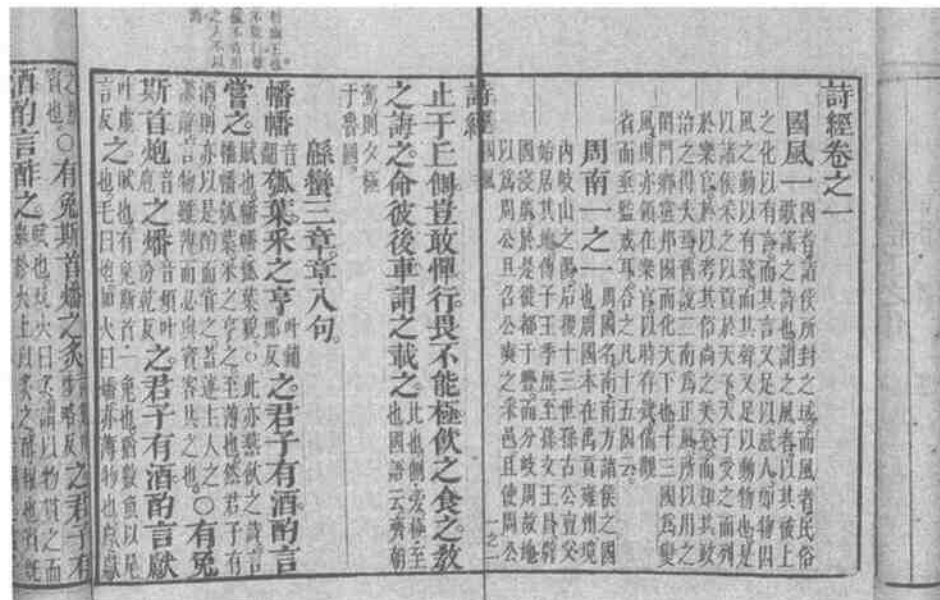 詩經卷之一
國風一 國者諸侯所封之域而風者民俗
歌謠之詩也謂之風者以其被上
之化以有言而其言又足以感人如物因
風之動以有聲而其聲又足以動物也是
以諸侯采之以貢於天子天子受之而列
於樂官於以考其俗尚之美惡而知其政
治之得失焉舊說二南為正風所以用之
閨門鄉黨邦國而化天下也十三國為變
風則亦領在樂官以時存肄備觀
省而垂監戒耳合之凡十五國云
周南一之一 周國名南南方諸侯之國
也周國本在禹貢雍州境
內岐山之陽后稷十三世孫古公亶父
始居其地傳子王季歷至孫文王昌辟
國寖廣於是徙都于豐而分岐周故地
以爲周公旦召公奭之采邑且使周公
詩經 國風 一之一
止于丘側豈敢憚行畏不能極飲之食之教
之誨之命彼後車謂之載之 比也側旁極至也國語云齊朝
駕則夕極于魯國
緜蠻三章章八句
幡幡音翻瓠葉采之亨叶鋪郎反之君子有酒酌言
嘗之 賦也幡幡瓠葉貌○此亦燕飲之詩言
幡幡瓠葉采之亨之至薄也然君子有
酒則亦以是酌而嘗之蓋述主人之
謙辭言物雖薄而必與賓客共之也○有兔
斯首炮之燔音煩叶汾乾反之君子有酒酌言獻
之 賦也有兔斯首一兔也猶數魚以尾
也毛曰炮加火曰燔亦薄物也
○有兔斯首燔之炙之君子有
酒酌言酢之 賦也炕火曰炙謂以物貫之而